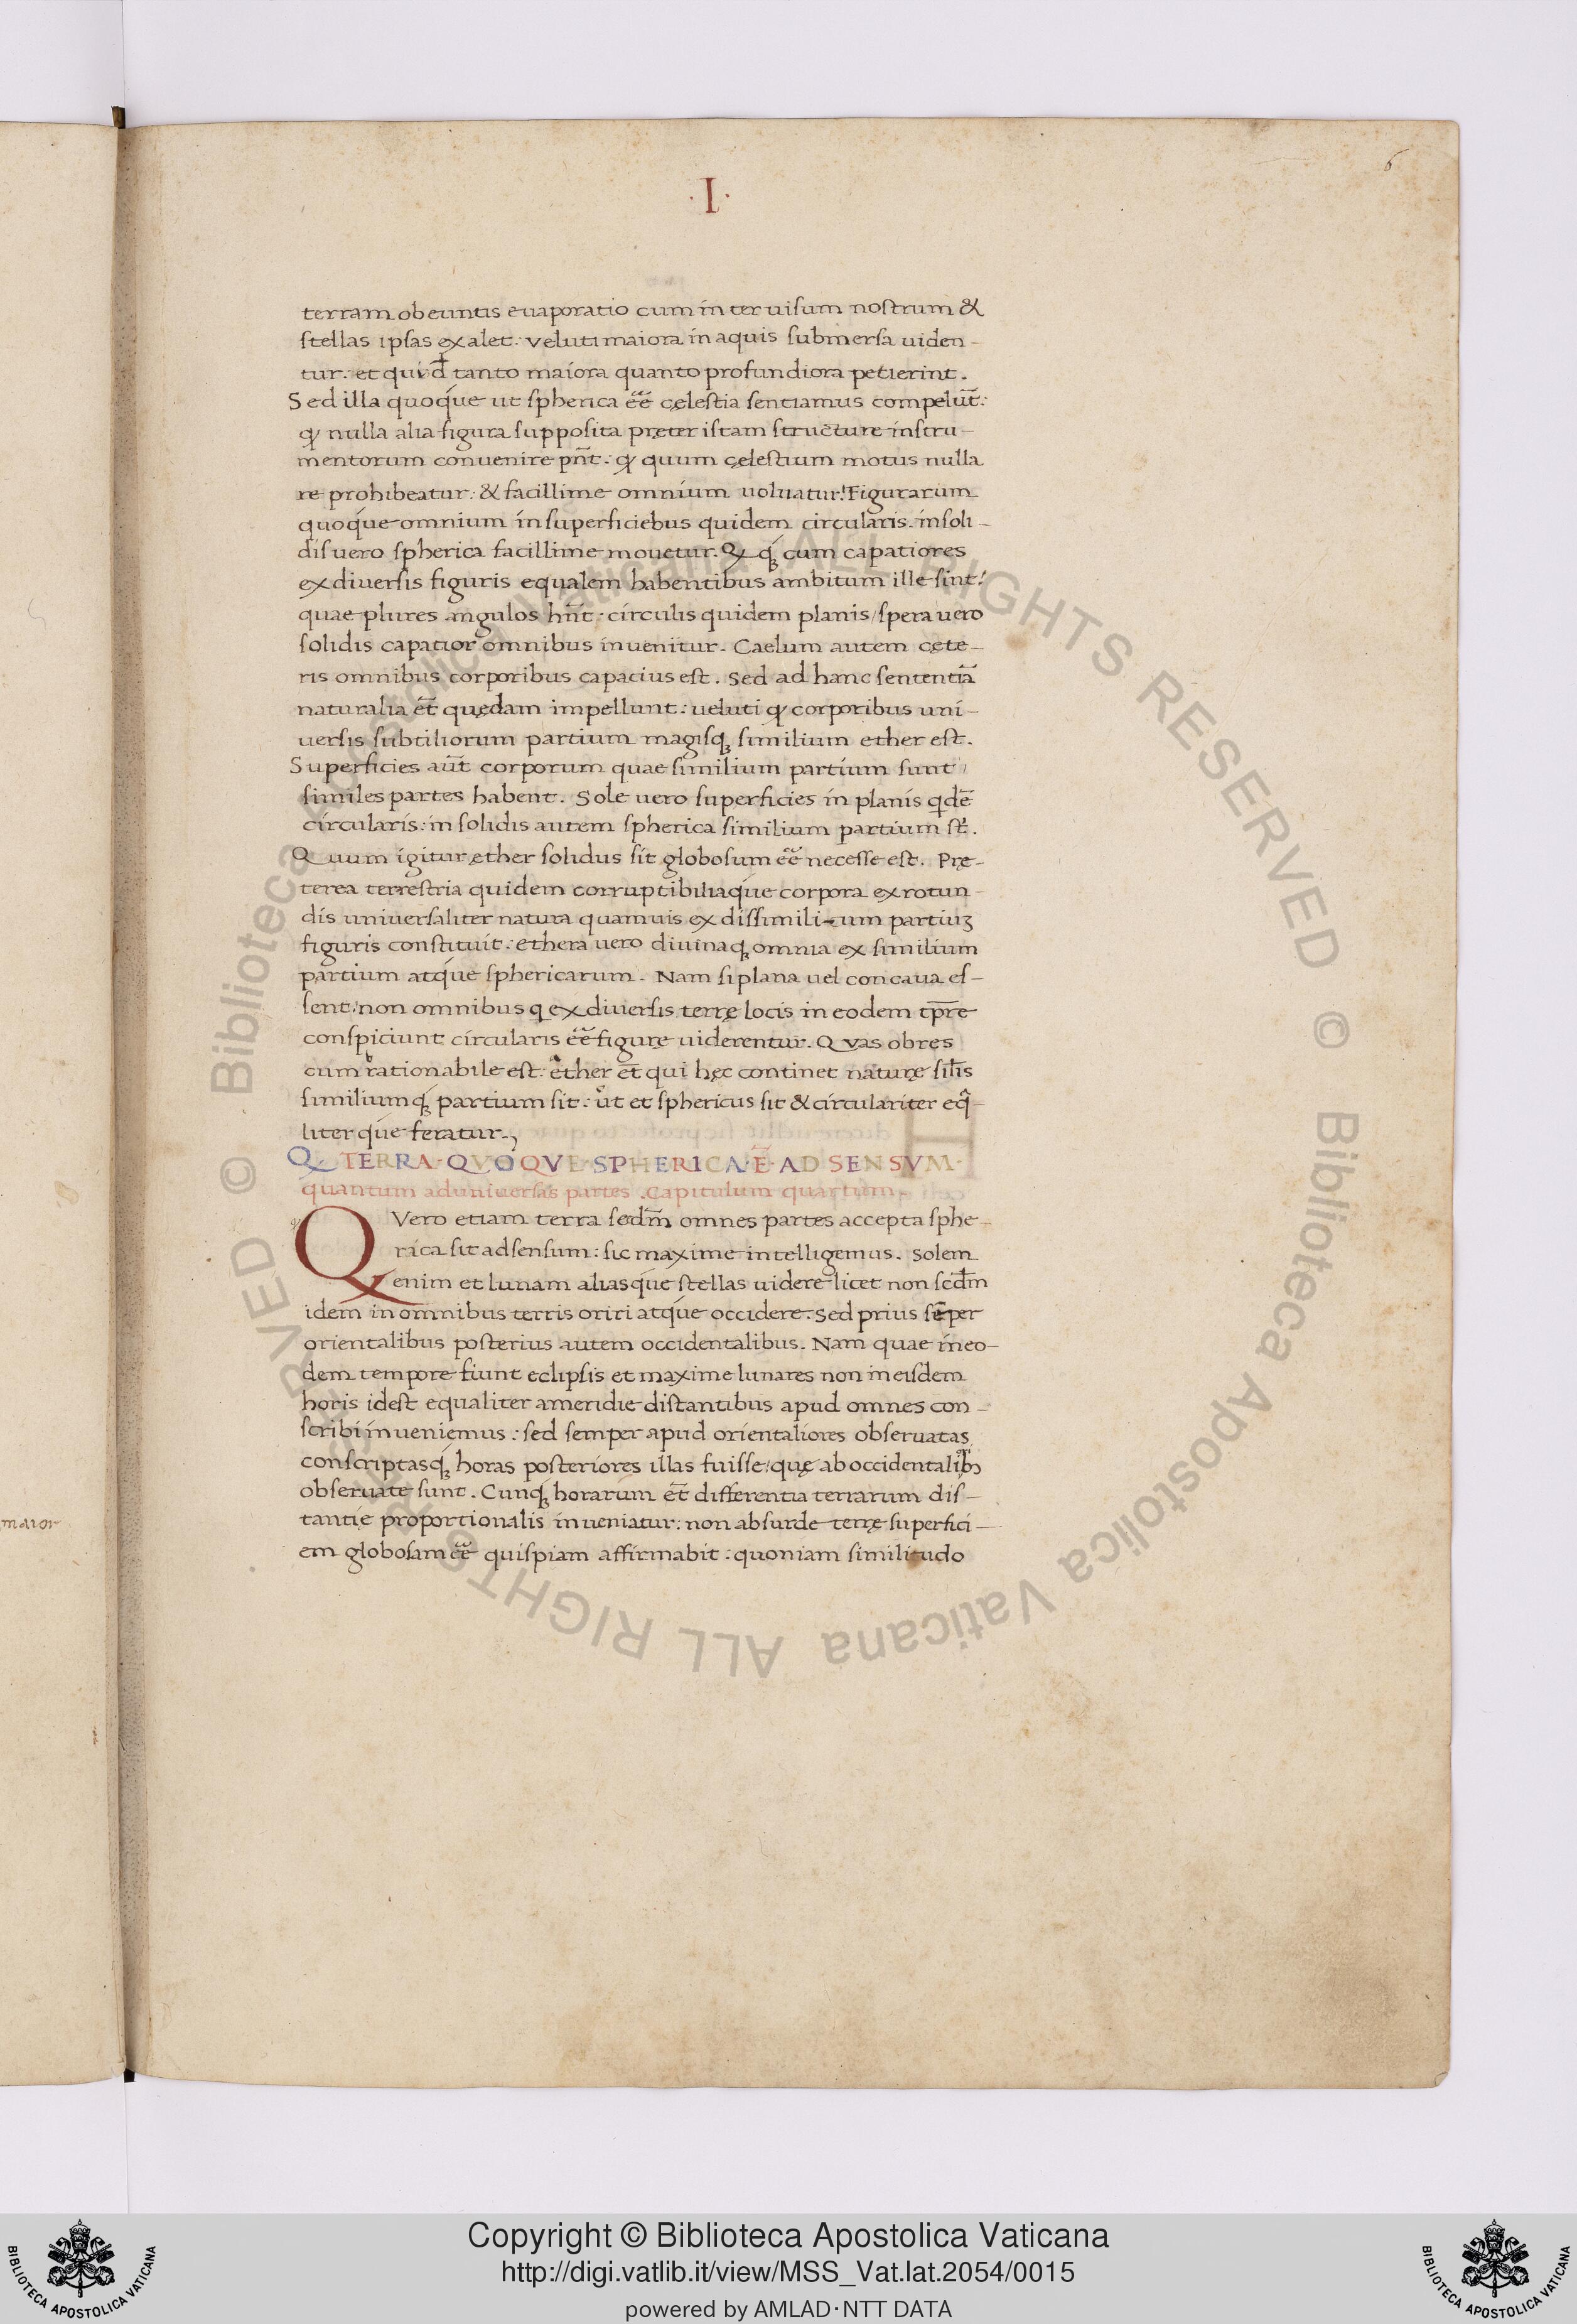 6
·I·
terram obeuntis euaporatio cum inter uisum nostrum &
stellas ipsas exalet: veluti maiora in aquis submersa uiden-
tur. et quid tanto maiora quanto profundiora petierint.
Sed illa quoque ut spherica ēē celestia sentiamus compelūt:
nulla alia figura supposita pręter istam structure instru-
mentorum convenire pn̄t: quum cęlestium motus nulla
re prohibeatur: & facillime omnium uoluatur! Figurarum
quoque omnium in superficiebus quidem circularis. in soli-
dis uero spherica facillime mouetur. cum capatiores
ex diuersis figuris equalem habentibus ambitum ille sint!
quae plures angulos hn̄t: circulis quidem planis/spera uero
solidis capatior omnibus inuenitur. Caelum autem cęte-
ris omnibus corporibus capacius est. Sed ad hanc sententiā
naturalia et̄ quędam impellunt: ueluti corporibus uni-
uersis subtiliorum partium magisq; similium ether est.
Superficies aūt corporum quae similium partium sunt/
similes partes habent. Sole uero superficies in planis qdē
circularis: in solidis autem spherica similium partium st̄.
Quum igitur ether solidus sit globosum ēē necesse est. Prę-
terea terrestria quidem corruptibiliaque corpora ex rotun-
dis uniuersaliter natura quamuis ex dissimilium partiuʒ
figuris constituit: ethera uero diuinaq; omnia ex similium
partium atque sphericarum. Nam si plana uel concaua es-
sent! non omnibus q ex diuersis terrę locis in eodem tp̄re
conspiciunt circularis ēē figurę uiderentur. Quas ob res
cum rationabile est: ether et̄ qui hęc continet naturę sil̄is
similiumq; partium sit: ut et sphericus sit & circulariter eq̄-
liter que feratur.
TERRA·QVOQVE·SPHERICA·Ē·AD SENSVM·
quantum ad uniuersas partes. Capitulum quartum.
Q Vero etiam terra sedm̄ omnes partes accepta sphe-
rica sit ad sensum: sic maxime intelligemus. Solem
enim et lunam aliasque stellas uidere licet non scdm̄
idem in omnibus terris oriri atque occidere. Sed prius sēper
orientalibus posterius autem occidentalibus. Nam quae in eo-
dem tempore fiunt eclipsis et maxime lunares non in eisdem
horis idest equaliter a meridie distantibus apud omnes con-
scribi inueniemus: sed semper apud orientaliores obseruatas
conscriptasq; horas posteriores illas fuisse/quę ab occidentalib;
obseruate sunt. Cunq; horarum et̄ differentia terrarum dis-
tantie proportionalis inueniatur: non absurde terrę superfici-
em globosam ēē quispiam affirmabit: quoniam similitudo
maior
© Biblioteca Apostolica Vaticana ALL RIGHTS RESERVED © Biblioteca Apostolica Vaticana ALL RIGHTS RESERVED
Copyright © Biblioteca Apostolica Vaticana
http://digi.vatlib.it/view/MSS_Vat.lat.2054/0015
powered by AMLAD·NTT DATA
BIBLIOTECA APOSTOLICA VATICANA
BIBLIOTECA APOSTOLICA VATICANA